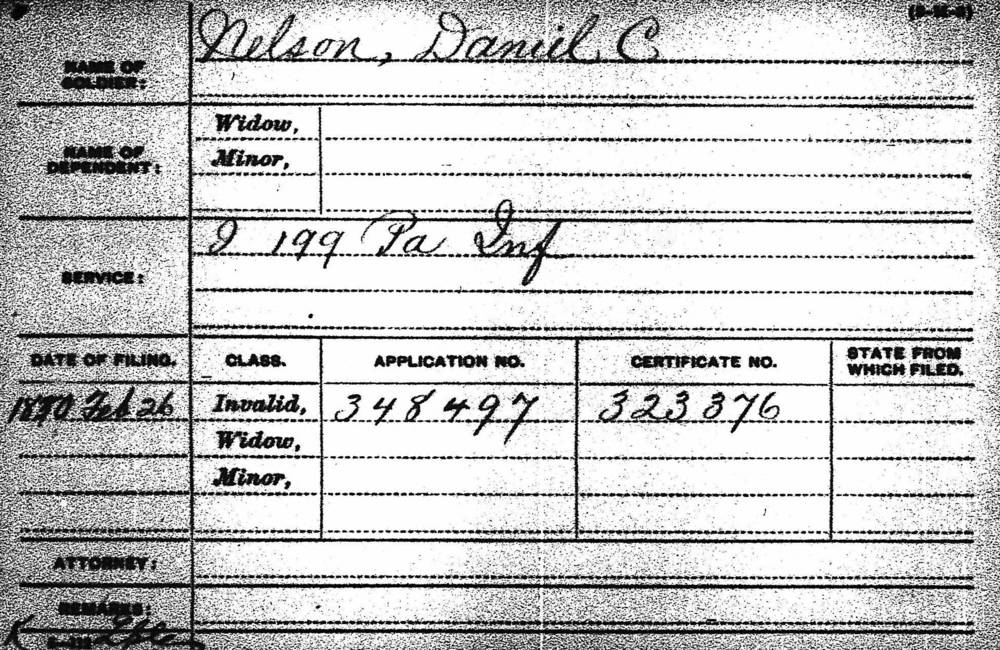 NAME OF SOLDIER: Nelson, Daniel C.
NAME OF DEPENDENT: Widow,
Minor,
SERVICE: I 199 Pa Inf
DATE OF FILING. CLASS. APPLICATION NO. CERTIFICATE NO. STATE FROM WHICH FILED.
1880 Feb 26 Invalid, 348497 323376
Widow,
Minor,
ATTORNEY:
REMARKS: